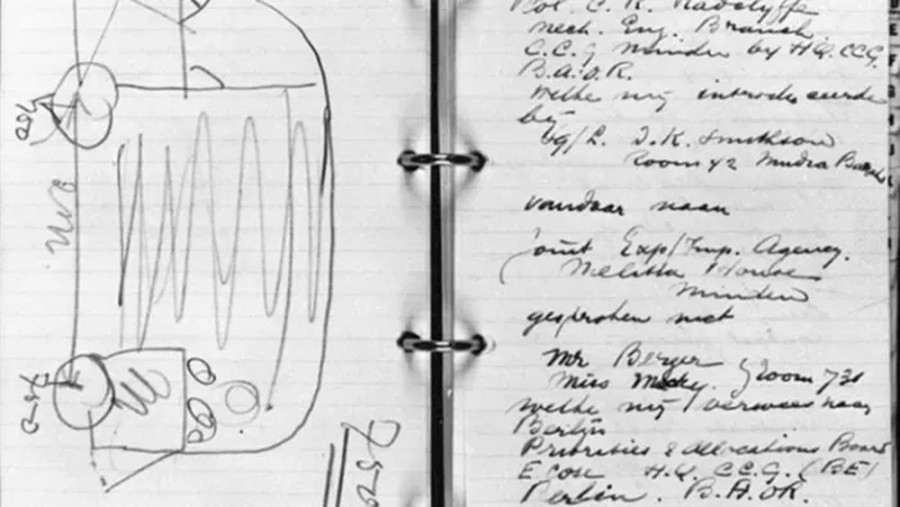 Col. C. R. Radclyffe
Mech. Eng. Branch
C.C.G. Minden by HQ. CCG.
B.A.O.R.
welke mij introduceerde
by
Sq/L. D.K. Smithson
Room 42 Mudra Barr
vandaar naar
Joint Exp/Imp. Agency.
Melitta House
Minden
gesproken met
Mr Berger
Miss room 731
welke mij verwees naar
Berlijn
Priorities & Allocations Board
Econ H.Q. CC.G. (BE)
Berlin. B.A.OR.